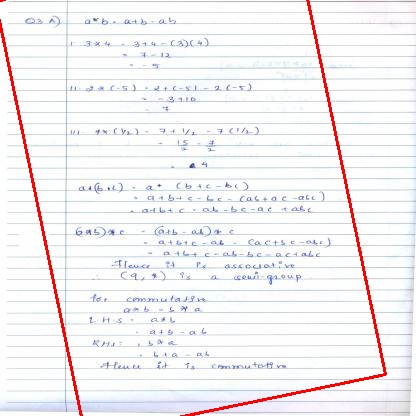 Q3 A) a*b = a+b-ab
i. 3*4 = 3+4-(3)(4)
= 7-12
= -5
ii. 2*(-5) = 2+(-5)-2(-5)
= -3+10
= 7
iii. 7*(1/2) = 7+1/2 - 7(1/2)
= 15/2 - 7/2
= 4
a*(b*c) = a* (b+c-bc)
= a+b+c-bc-(ab+ac-abc)
= a+b+c-ab-bc-ac+abc
(a*b)*c = (a+b-ab)*c
= a+b+c-ab-(ac+bc-abc)
= a+b+c-ab-bc-ac+abc
Hence it is associative
∴ (Q, *) is a semi-group.
for commutative
a*b = b*a
L.H.S = a*b
= a+b-ab
RHS: b*a
= b+a-ab
Hence it is commutative